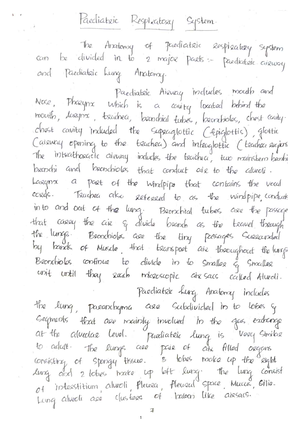 Paediatric Respiratory System
The Anatomy of paediatric respiratory system
can be divided in to 2 major parts :- paediatric airway
and Paediatric Lung Anatomy.
Paediatric Airway includes mouth and
Nose, Pharynx which is a cavity located behind the
mouth, Larynx, trachea, bronchial tubes, bronchioles, chest cavity.
chest cavity included the supraglottic (epiglottis), glottic
(airway opening to the trachea) and infraglottic (trachea
The intrathoracic airway includes the trachea, two mainstem bronchi
bronchi and bronchioles that conduct air to the alveoli.
Larynx a part of the windpipe that contains the vocal
cords. Trachea also referred to as the windpipe, conducts
into and out of the lung. Bronchial tubes are the passage
that carry the air & divide branch as the travel through
the lungs. Bronchiole are the tiny passages surrounded
by bands of Muscle, that transport air throughout the lungs
Bronchioles continue to divide in to smaller & smaller
unit until they reach microscopic air sacs called Alveoli.
Paediatric Lung Anatomy includes
the lung, parenchyma are subdivided in to lobes &
segments that are mainly involved in the gas exchange
at the alveolar level. paediatric lung is very similar
to adult. The lungs are pair of air filled organs
consisting of spongy tissue. 3 lobes make up the right
lung and 2 lobes make up left lung. The lung consist
of interstitium, alveoli, Pleura, Pleural space, Mucus, Cilia.
Lung alveoli are clusters of balloon like airsacs.